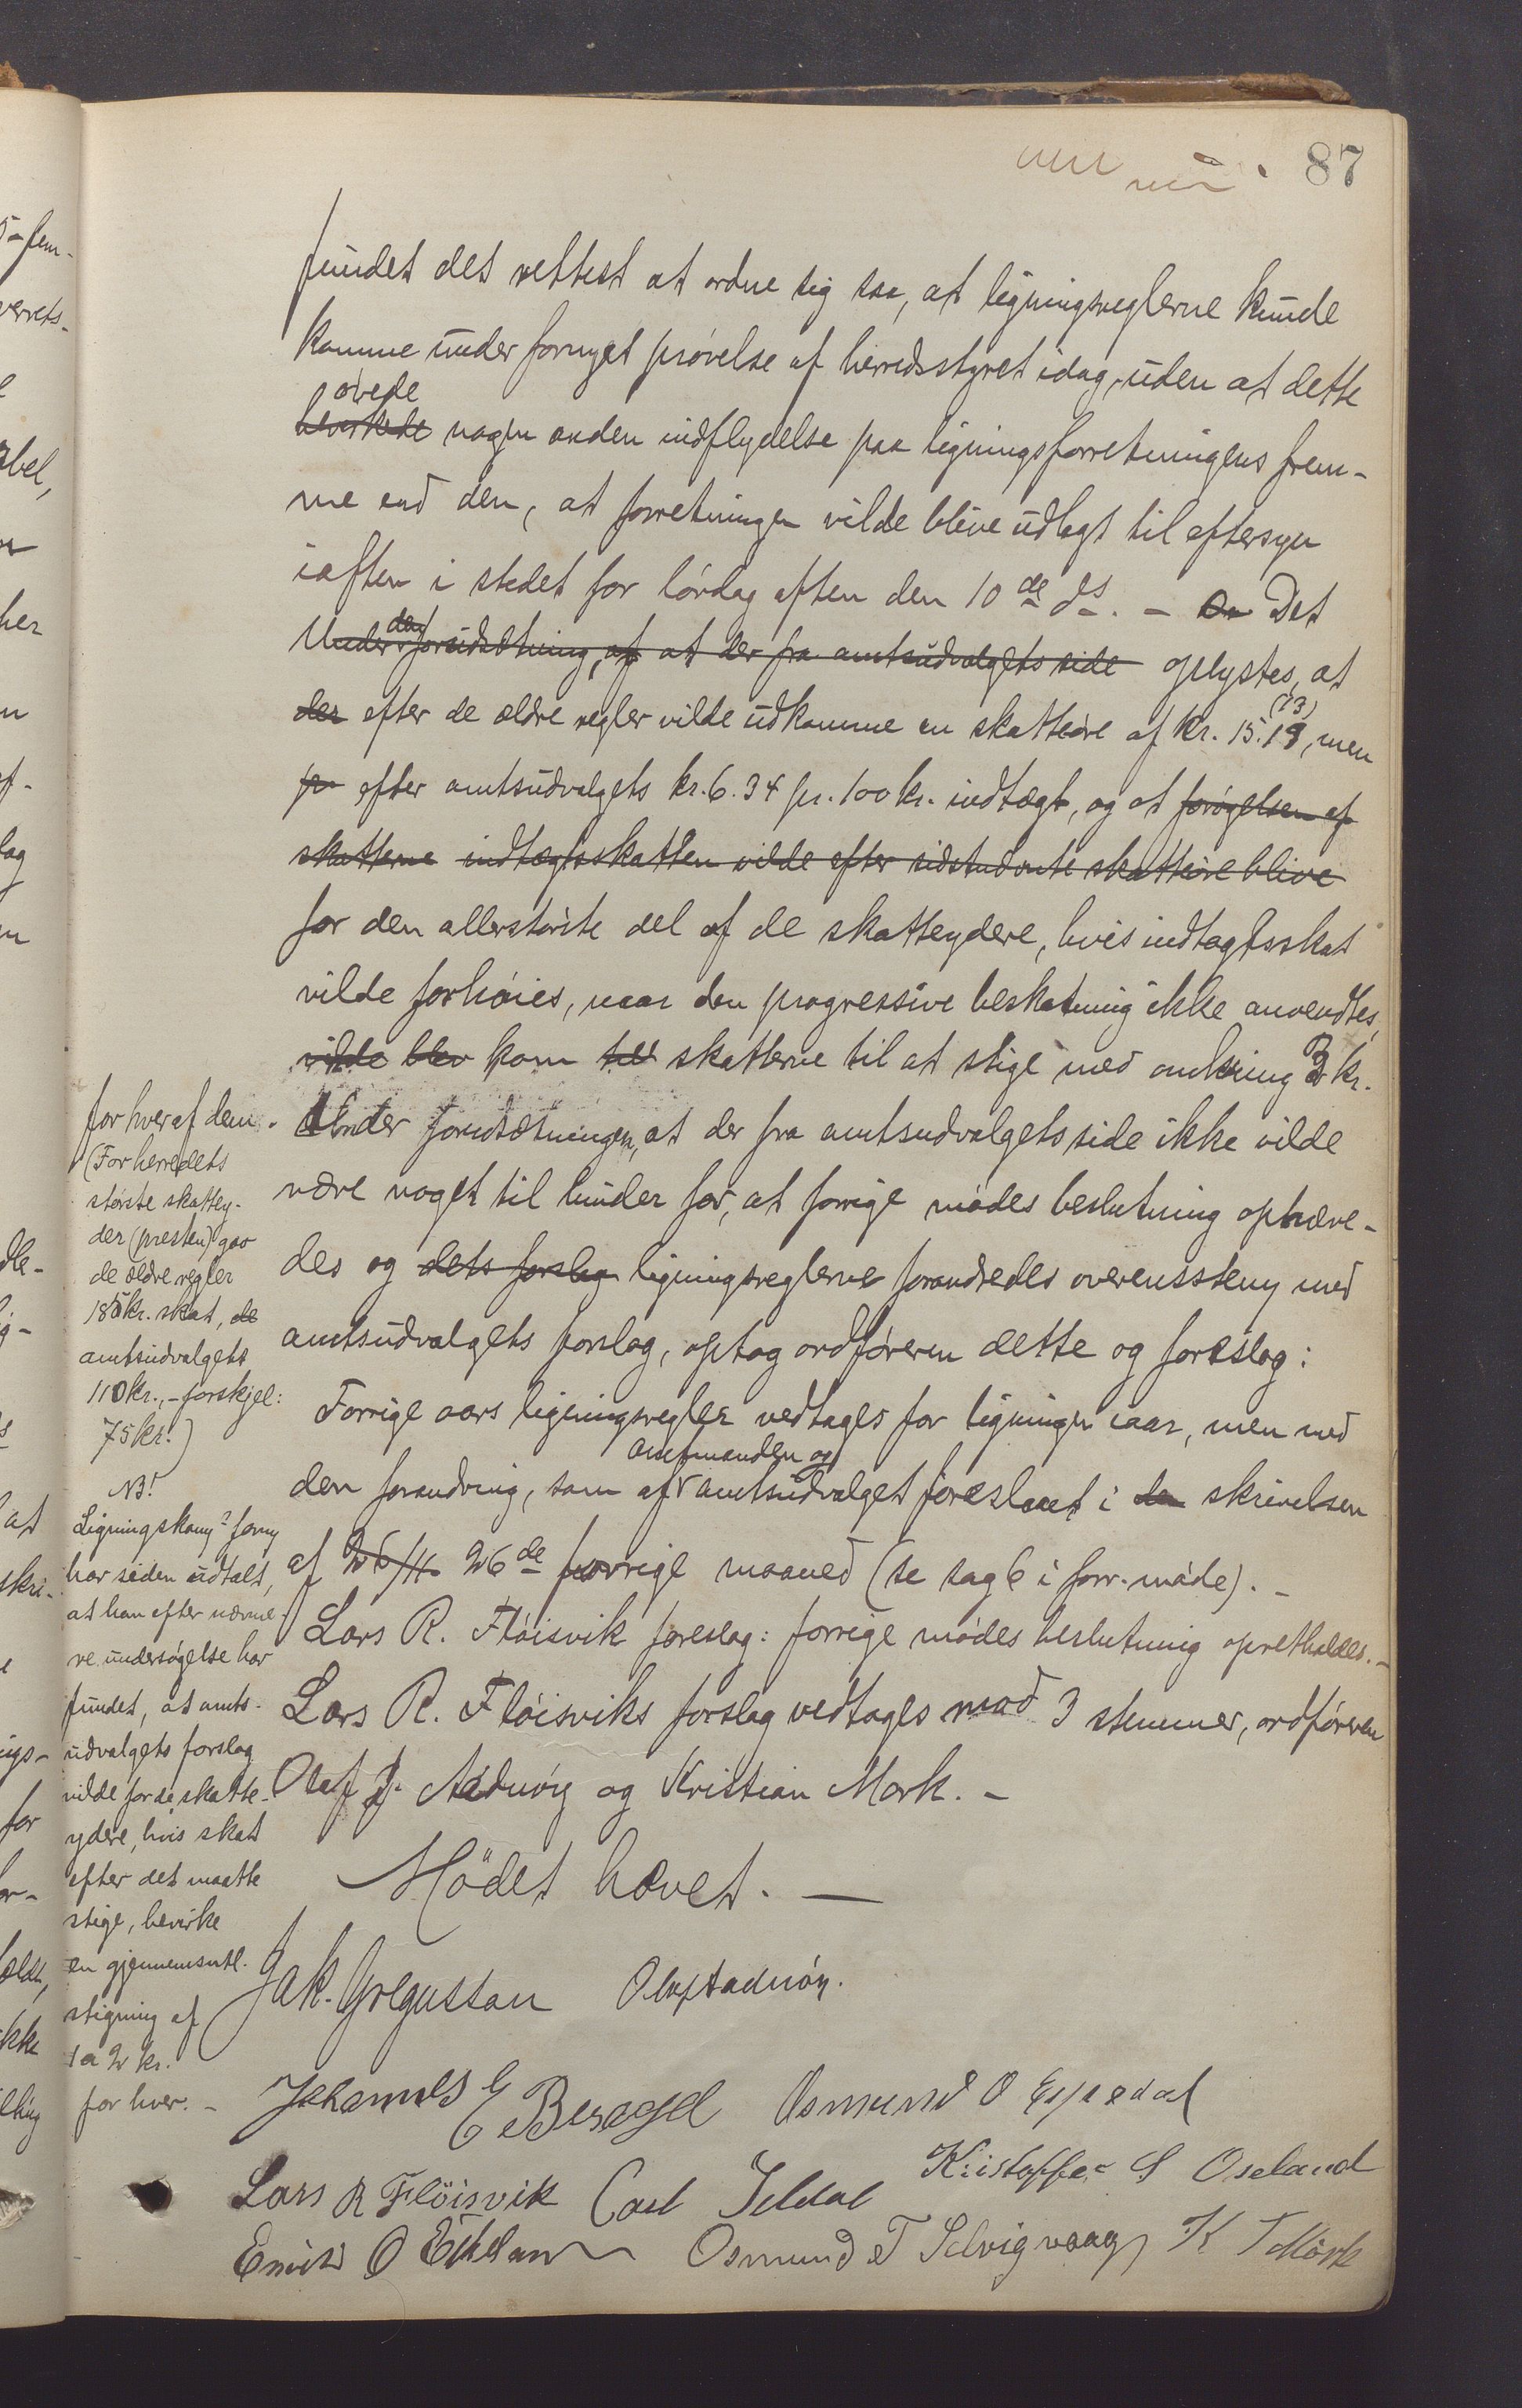 87
fundet det rettest at ordne sig saa, at ligningsreglerne kunde
komme under fornyet prøvelse af herredsstyret idag, uden at dette
øvede
bevirkede nogen anden indflydelse paa ligningsforretningens frem-
me end den, at forretningen vilde blive udlagt til eftersyn
iaften i stedet for lørdag aften den 10de ds. - Det
den
Under forudsætning, af at der fra amtsudvalgets side oplystes, at
(23)
der efter de ældre regler vilde udkomme en skatteøre af kr. 15.19, men
pr efter amtsudvalgets kr. 6.34 pr. 100 kr. indtægt, og at forøgelsen af
skatterne indtægtsskatten vilde efter sidstnævnte skatteøre blive
for den allerstørste del af de skatteydere, hvis indtægtsskat
vilde forhøies, naar den progressive beskatning ikke anvendtes,
vilde blev kom til skatterne til at stige med omkring 3 kr.
Under forudsætningen, at der fra amtsudvalgets side ikke vilde
være noget til hinder for, at forrige mødes beslutning ophæve-
des og dets forslag ligningsreglerne forandredes overensstem̅ med
amtsudvalgets forslag, optog ordføreren dette og foreslog:
Forrige aars ligningsregler vedtages for ligningen iaar, men med
amtmanden og
den forandring, som af amtsudvalget foreslaaet i den skrivelsen
af 26/11 26de forrige maaned (se sag 6 i forr. møde). -
Lars R. Fløisvik foreslog: forrige mødes beslutning opretholdes. -
Lars R. Fløisviks forslag vedtages mod 3 stemmer, ordføreren
Olaf J. Adnøy og Kristian Mørk. -
Mödet hævet. —
Jak. Golgussan Olaf Jadnöy.
Johannes E Bergel Osmund O Espedal
Kristoffer S Oseland
Lars R Flöisvik Carl Iddal
Enok O Eikeland Osmund T Selvigvaag K T Mørk
for hver af dem.
(For herredets
største skattey-
der (presten) gav
de ældre regler
185 kr. skat, de
amtsudvalgets
110 kr., - forskjel:
75 kr.)
NB!
Ligningskom̅s form̅
har siden udtalt,
at han efter nærme-
re undersøgelse har
fundet, at amts-
udvalgets forslag
vilde for de skatte-
ydere, hvis skat
efter det maatte
stige, bevirke
en gjennemsnitl.
stigning af
1 a 2 kr.
for hver. -